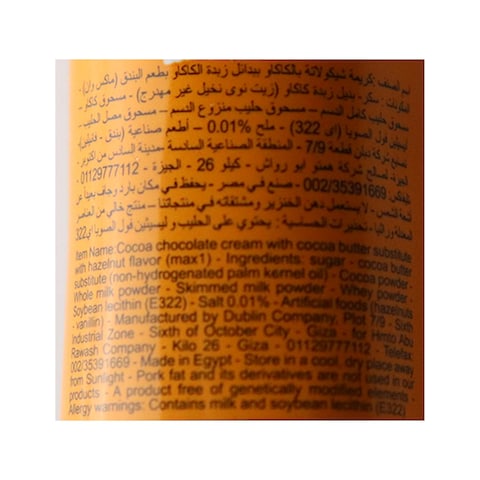 اسم الصنف: كريمة شيكولاتة بالكاكاو ببدائل زبدة الكاكاو بطعم البندق (ماكس وان) -
المكونات : سكر - بديل زبدة كاكاو (زيت نوى نخيل غير مهدرج) - مسحوق كاكاو -
مسحوق حليب كامل الدسم - مسحوق حليب منزوع الدسم - مسحوق مصل الحليب -
ليسيثين فول الصويا (اى 322) - ملح 0.01% - أطعم صناعية (بندق - فانيلين)
تصنيع شركة دبلن قطعة 7/9 - المنطقة الصناعية السادسة - مدينة السادس من اكتوبر -
الجيزة - لصالح شركة همتو ابو رواش - كيلو 26 - الجيزة - 01129777112
تليفاكس: 002/35391669 - صنع في مصر - يحفظ في مكان بارد وجاف بعيداً عن
أشعة الشمس - لا يستعمل دهن الخنزير ومشتقاته في منتجاتنا - منتج خالي من العناصر
المعدلة وراثيا - تحذيرات الحساسية : يحتوي على الحليب و ليسيثين فول الصويا اى322
Item Name:Cocoa chocolate cream with cocoa butter substitute
with hazelnut flavor (max1) - Ingredients: sugar - cocoa butter
substitute (non-hydrogenated palm kernel oil) - Cocoa powder -
Whole milk powder - Skimmed milk powder - Whey powder -
Soybean lecithin (E322) - Salt 0.01% - Artificial foods (hazelnuts
- vanillin) - Manufactured by Dublin Company, Plot 7/9 - Sixth
Industrial Zone - Sixth of October City - Giza - for Himto Abu
Rawash Company - Kilo 26 - Giza - 01129777112 - Telefax:
002/35391669 - Made in Egypt - Store in a cool, dry place away
from Sunlight - Pork fat and its derivatives are not used in our
products - A product free of genetically modified elements -
Allergy warnings: Contains milk and soybean lecithin (E322)